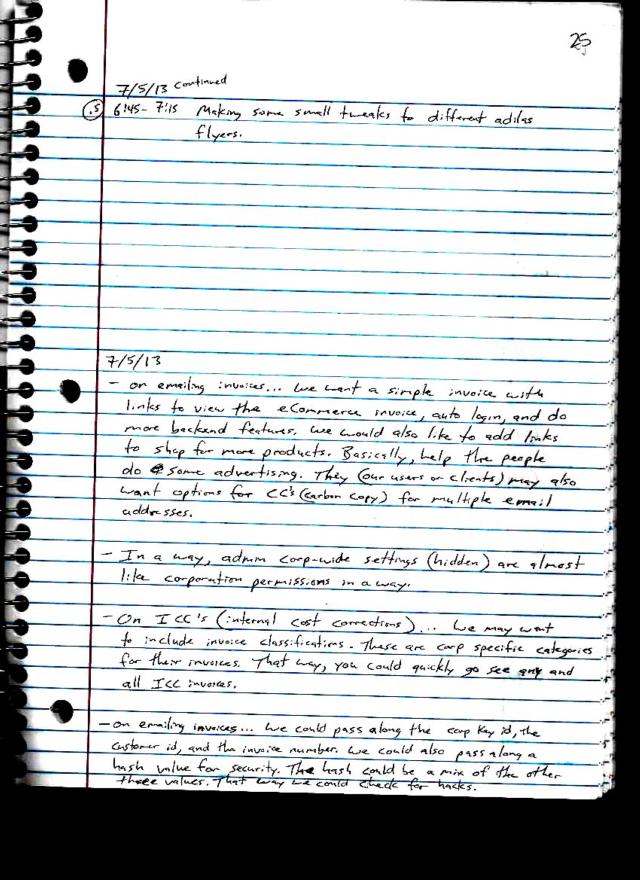 25
7/5/13 continued
.5 6:45 - 7:15 Making some small tweaks to different adilas
flyers.
7/5/13
- On emailing invoices... We want a simple invoice with
links to view the eCommerce invoice, auto login, and do
more backend features. We would also like to add links
to shop for more products. Basically, help the people
do some advertising. They (our users or clients) may also
want options for CC's (carbon copy) for multiple email
addresses.
- In a way, admin corp-wide settings (hidden) are almost
like corporation permissions in a way.
- On ICC's (internal cost corrections)... We may want
to include invoice classifications. These are corp specific categories
for their invoices. That way, you could quickly go see any and
all ICC invoices.
- On emailing invoices... We could pass along the corp key id, the
customer id, and the invoice number. We could also pass along a
hash value for security. The hash could be a mix of the other
three values. That way we could check for hacks.